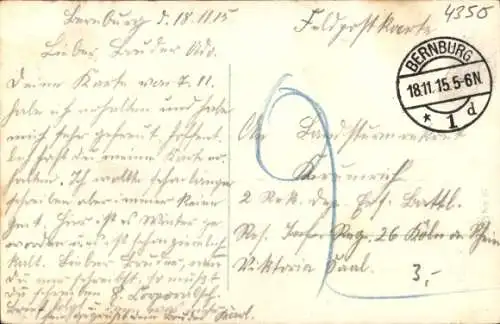 Bernburg d. 18.11.15
Lieber Bruder Ado.
Deine Karte vom 7.11.
habe ich erhalten und habe
mich sehr gefreut hoffent
lich hast du meine Karte er
halten. Ich wollte schon länger
schreiben aber immer keine
Zeit. Hier ist es Winter ge
worden und es ist schon ziemlich
kalt. Lieber Bruder, wenn
du mir schreibst so mußt
du schreiben
Bruder
Feldpostkarte
4350
BERNBURG
18.11.15.5-6N.
* 1 d
An Landsturmrekrut
2 Rek. Dep. Ers. Battl.
Res. Inf. Reg. 26 Köln a. Rhein
Viktoria Saal.
3,-